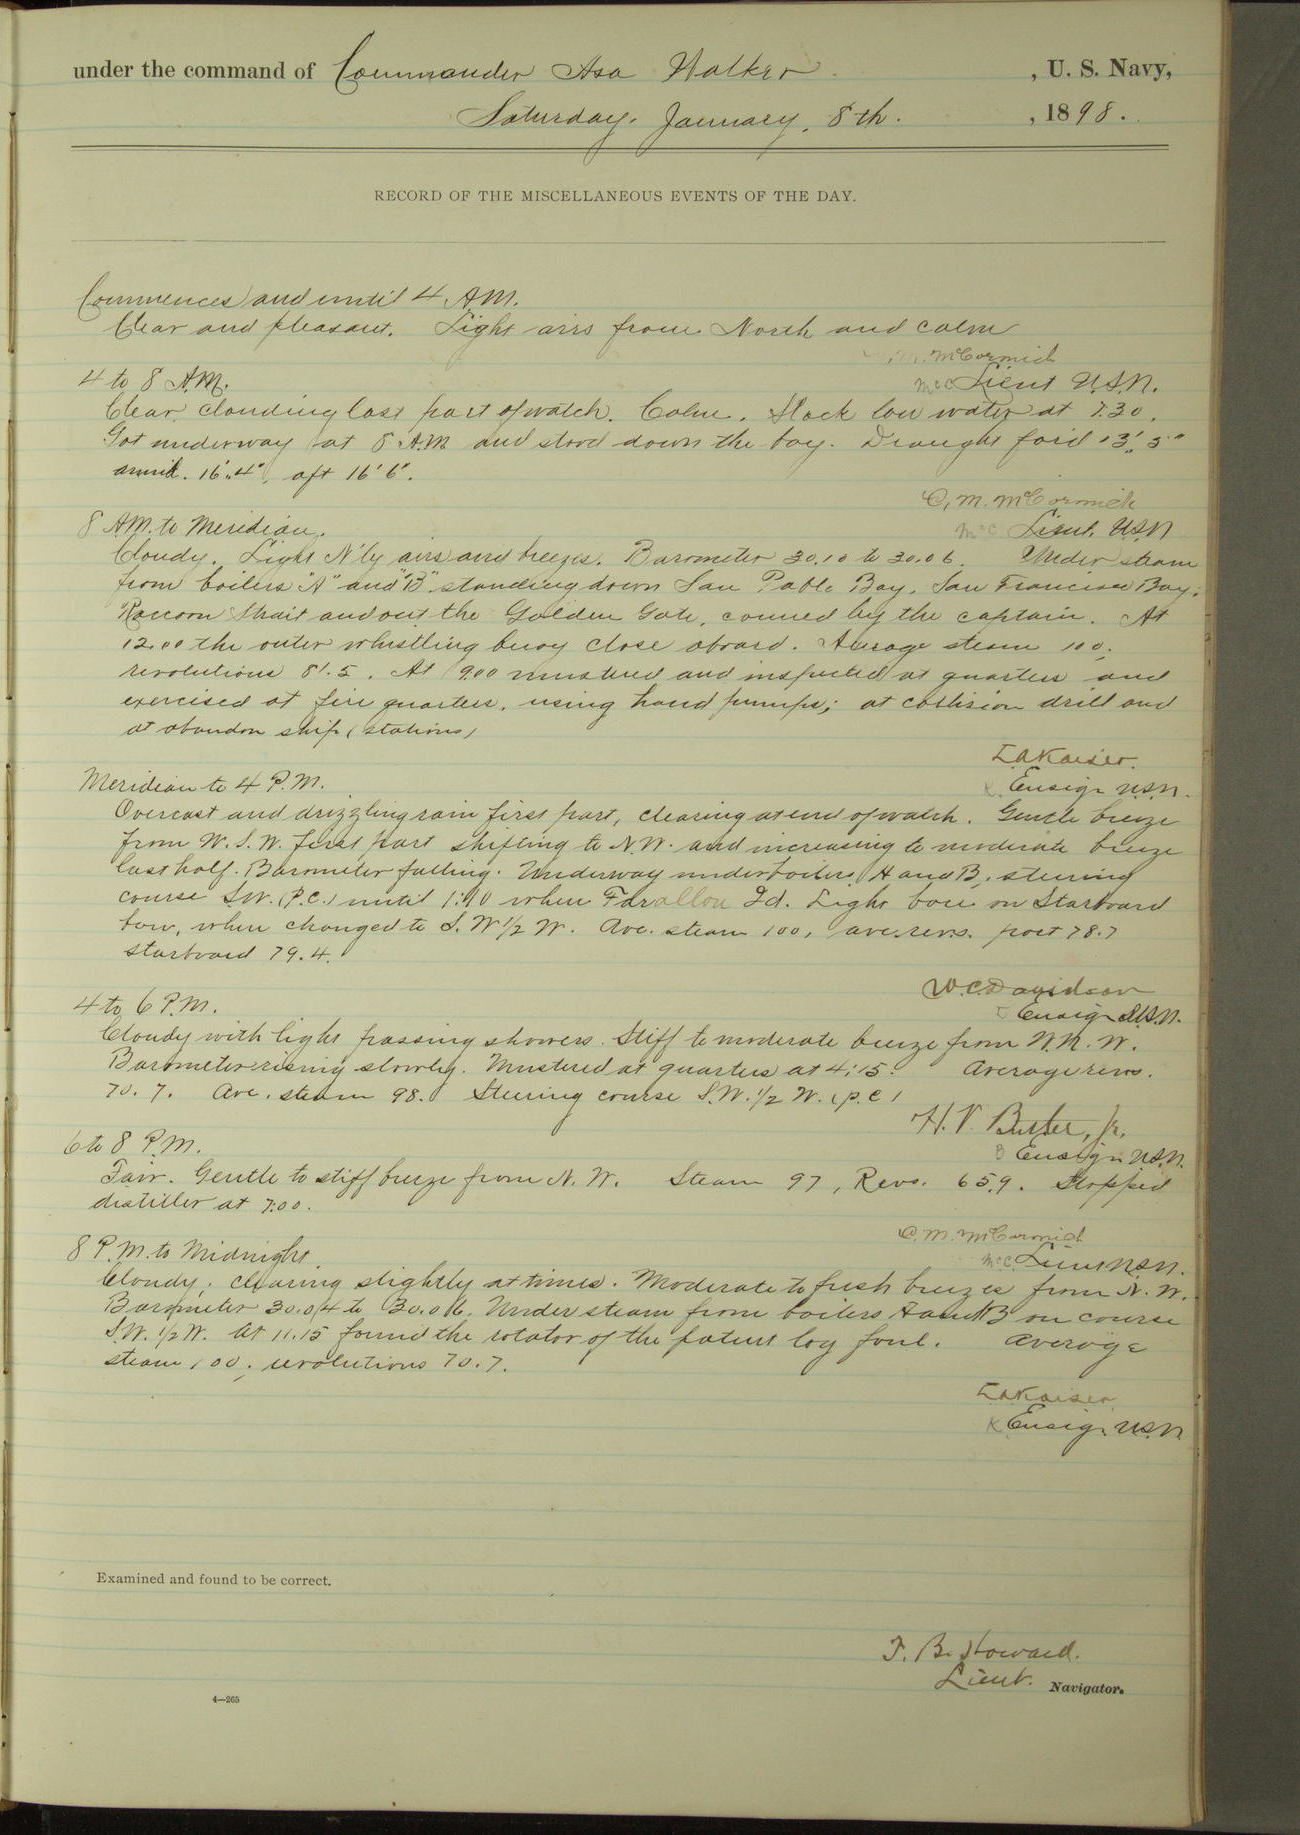 under the command of Commander Asa Walker , U. S. Navy,
Saturday, January, 8th. , 1898.
RECORD OF THE MISCELLANEOUS EVENTS OF THE DAY.
Commences and until 4 A.M.
Clear and pleasant. Light airs from North and calm
C. M. McCormick
McC Lieut U.S.N.
4 to 8 A.M.
Clear, clouding last part of watch. Calm. Slack low water at 7.30.
Got underway at 8 A.M. and stood down the bay. Draught for'd 13', 5"
amid. 16'.4", aft 16'6".
C, M. McCormick
McC Lieut. USN
8 AM. to Meridian.
Cloudy. Light N'ly airs and breezes. Barometer 30.10 to 30.06. Under steam
from boilers "A" and "B" standing down San Pablo Bay, San Francisco Bay,
Raccoon Strait and out the Golden Gate, conned by the captain. At
12.00 the outer whistling buoy close aboard. Average steam 100,
revolutions 81.5. At 9.00 mustered and inspected at quarters and
exercised at fire quarters, using hand pumps; at collision drill and
at abandon ship (stations)
L.A. Kaiser.
K. Ensign U.S.N.
Meridian to 4 P.M.
Overcast and drizzling rain first part, clearing at end of watch. Gentle breeze
from W. S. W. first part shifting to N.W. and increasing to moderate breeze
last half. Barometer falling. Underway under boilers A and B, steering
course S.W. (P.C.) until 1:10 when Farallon Id. Light bore on Starboard
bow, when changed to S. W 1/2 W. Ave. steam 100, ave. revs. port 78.7
starboard 79.4.
W. C. Davidson
D Ensign U.S.N.
4 to 6 P.M.
Cloudy with light passing showers. Stiff to moderate breeze from N.N.W.
Barometer rising slowly. Mustered at quarters at 4:15. Average revs.
70.7. Ave. steam 98. Steering course S.W. 1/2 W. (p.c)
H. V. Butler, Jr.
B Ensign U.S.N.
6 to 8 P.M.
Fair. Gentle to stiff breeze from N. W. Steam 97, Revs. 65.9. Stopped
distiller at 7:00.
C. M. McCormick
McC. Lieut U.S.N.
8 P.M. to Midnight.
Cloudy, clearing slightly at times. Moderate to fresh breezes from N. W.
Barometer 30.04 to 30.06. Under steam from boilers A and B on course
S.W. 1/2 W. At 11.15 found the rotator of the patent log foul. Average
steam 100, revolutions 70.7.
L.A. Kaiser
K Ensign. U.S.N
Examined and found to be correct.
T. B. Howard.
Lieut. Navigator.
4—265